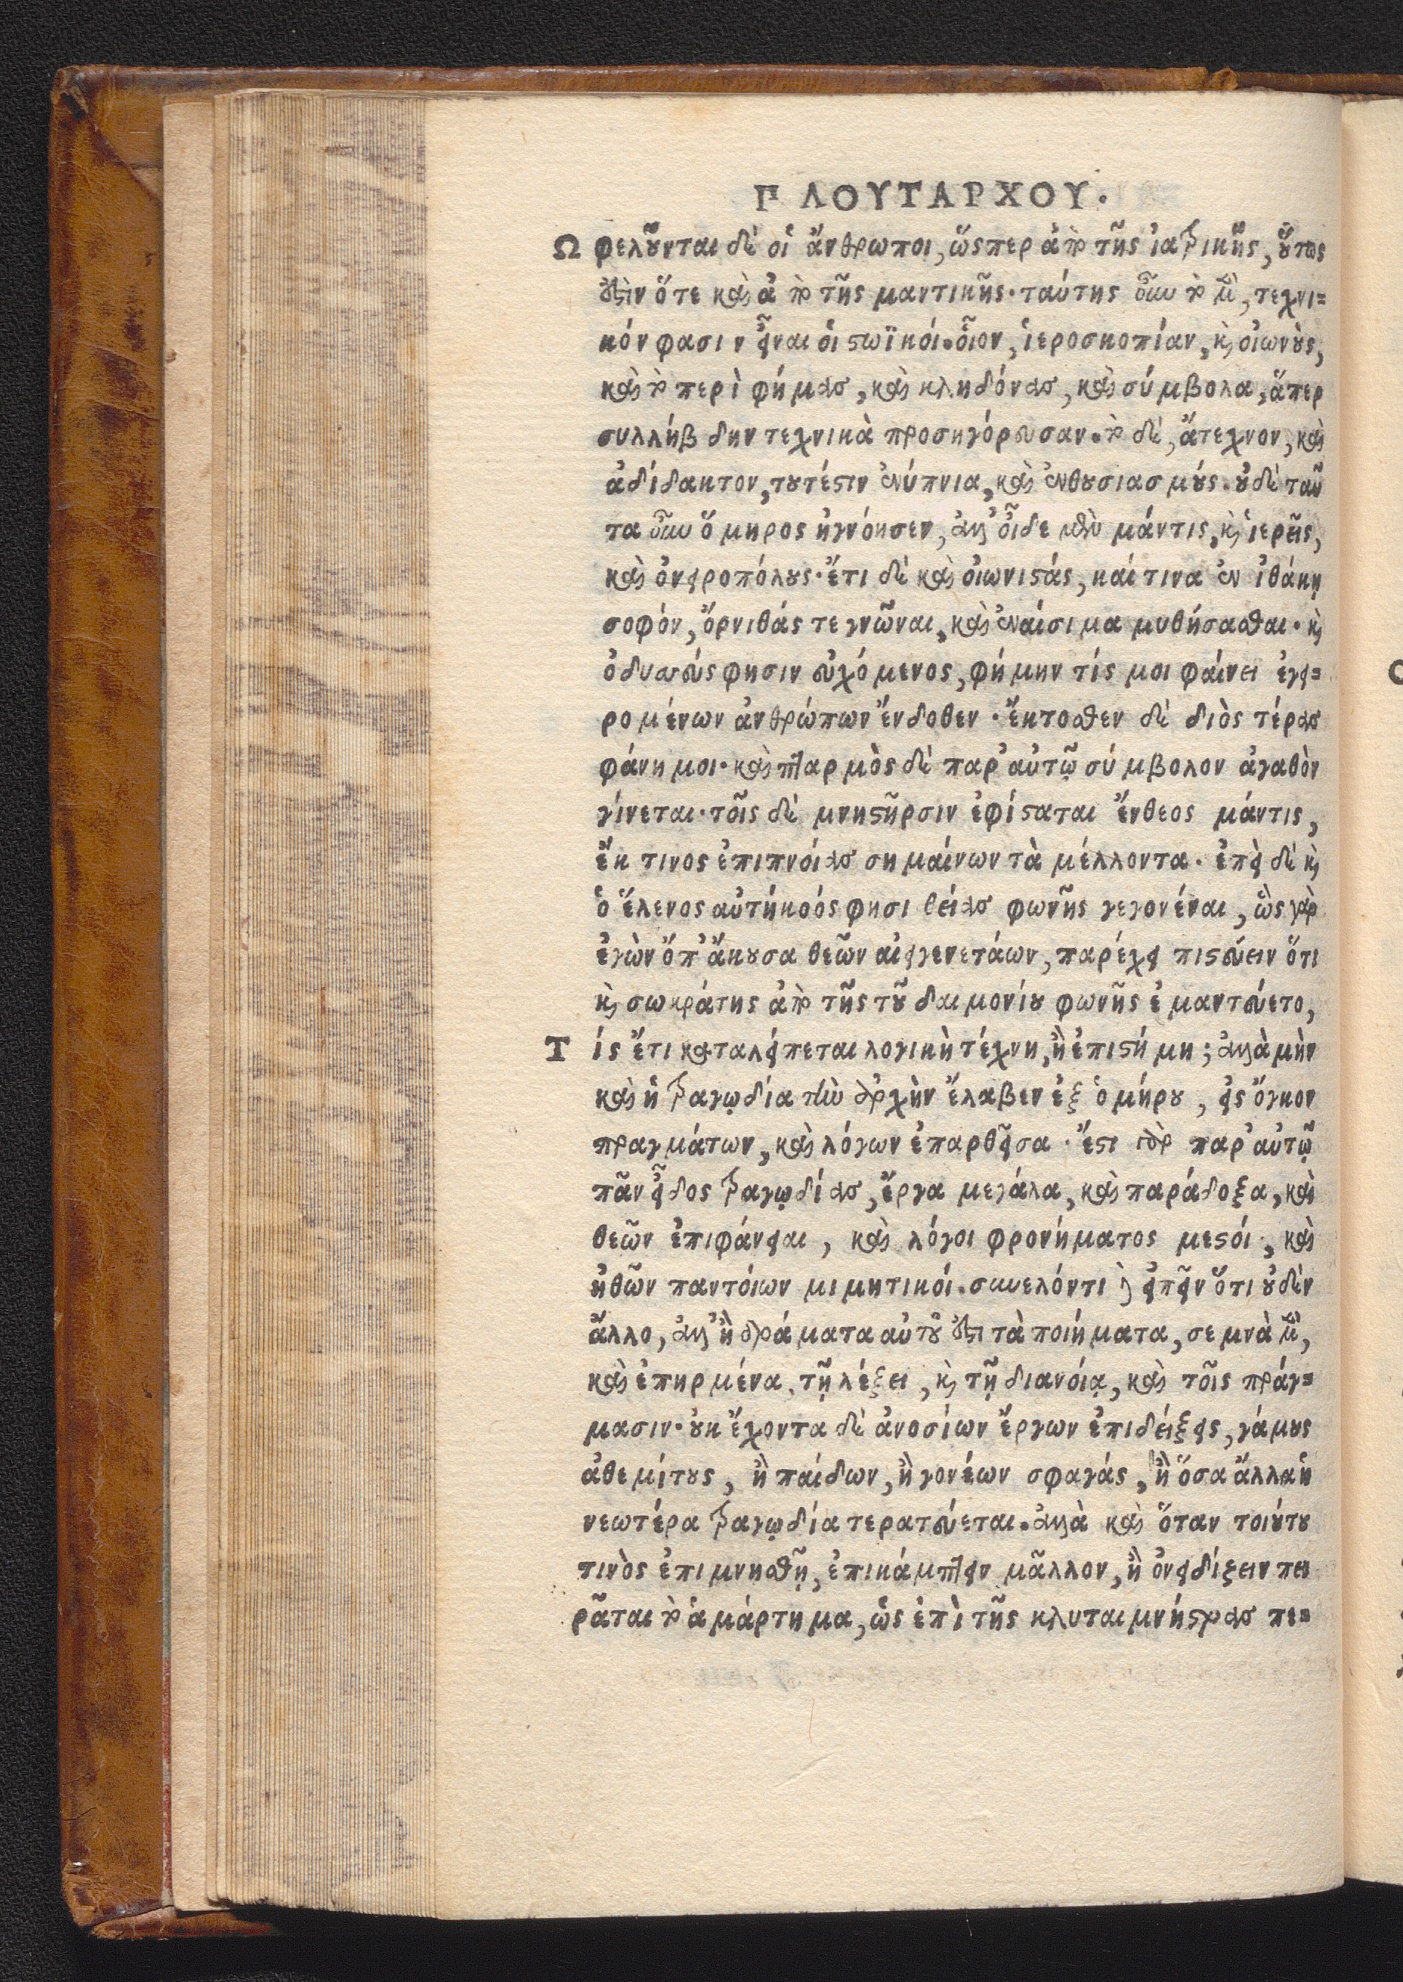 ΠΛΟΥΤΑΡΧΟΥ.
Ωφελοῦνται δὲ οἱ ἄνθρωποι, ὥσπερ ἀπὸ τῆς ἰατρικῆς, οὕτως
ἐστὶν ὅτε καὶ ἀπὸ τῆς μαντικῆς. ταύτης οὖν τὸ μὲν, τεχνι=
κόν φασιν εἶναι οἱ στωϊκοί. οἷον, ἱεροσκοπίαν, καὶ οἰωνοὺς,
καὶ τὸ περὶ φήμας, καὶ κληδόνας, καὶ σύμβολα, ἅπερ
συλλήβδην τεχνικὰ προσηγόρευσαν. τὸ δὲ, ἄτεχνον, καὶ
ἀδίδακτον, τουτέστιν ἐνύπνια, καὶ ἐνθουσιασμούς. οὐδὲ ταῦ
τα οὖν ὅμηρος ἠγνόησεν, ἀλλ' οἶδε μὲν μάντις, καὶ ἱερεῖς,
καὶ ὀνειροπόλους. ἔτι δὲ καὶ οἰωνιστάς, καί τινα ἐν ἰθάκῃ
σοφόν, ὄρνιθάς τε γνῶναι, καὶ ἐναίσιμα μυθήσασθαι. καὶ
ὀδυσσεύς φησιν εὐχόμενος, φήμην τίς μοι φαίνει ἐγει=
ρομένων ἀνθρώπων ἔνδοθεν. ἔκτοσθεν δὲ διὸς τέρας
φάνη μοι. καὶ πταρμὸς δὲ παρ' αὐτῷ σύμβολον ἀγαθὸν
γίνεται. τοῖς δὲ μνηστῆρσιν ἐφίσταται ἔνθεος μάντις,
ἔκ τινος ἐπιπνοίας σημαίνων τὰ μέλλοντα. ἐπεὶ δὲ καὶ
ὁ ἕλενος αὐτήκοός φησι θείας φωνῆς γεγονέναι, ὣς γὰρ
ἐγὼν ὄπ' ἄκουσα θεῶν αἰειγενετάων, παρέχει πιστεύειν ὅτι
καὶ σωκράτης ἀπὸ τῆς τοῦ δαιμονίου φωνῆς ἐμαντεύετο,
Τίς ἔτι καταλείπεται λογικὴ τέχνη, ἢ ἐπιστήμη; ἀλλὰ μὴν
καὶ ἡ τραγῳδία τὴν ἀρχὴν ἔλαβεν ἐξ ὁμήρου, εἰς ὄγκον
πραγμάτων, καὶ λόγων ἐπαρθεῖσα. ἔστι γὰρ παρ' αὐτῷ
πᾶν εἶδος τραγῳδίας, ἔργα μεγάλα, καὶ παράδοξα, καὶ
θεῶν ἐπιφάνειαι, καὶ λόγοι φρονήματος μεστοί, καὶ
ἠθῶν παντοίων μιμητικοί. συνελόντι δὲ εἰπεῖν ὅτι οὐδὲν
ἄλλο, ἀλλ' ἢ δράματα αὐτοῦ ἐστι τὰ ποιήματα, σεμνὰ μὲν,
καὶ ἐπηρμένα, τῇ λέξει, καὶ τῇ διανοίᾳ, καὶ τοῖς πράγ=
μασιν. οὐκ ἔχοντα δὲ ἀνοσίων ἔργων ἐπιδείξεις, γάμους
ἀθεμίτους, ἢ παίδων, ἢ γονέων σφαγάς, ἢ ὅσα ἄλλα ἡ
νεωτέρα τραγῳδία τερατεύεται. ἀλλὰ καὶ ὅταν τοιούτου
τινὸς ἐπιμνησθῇ, ἐπικάμπτειν μᾶλλον, ἢ ὀνειδίζειν πει
ρᾶται τὸ ἁμάρτημα, ὡς ἐπὶ τῆς κλυταιμνήστρας πε=